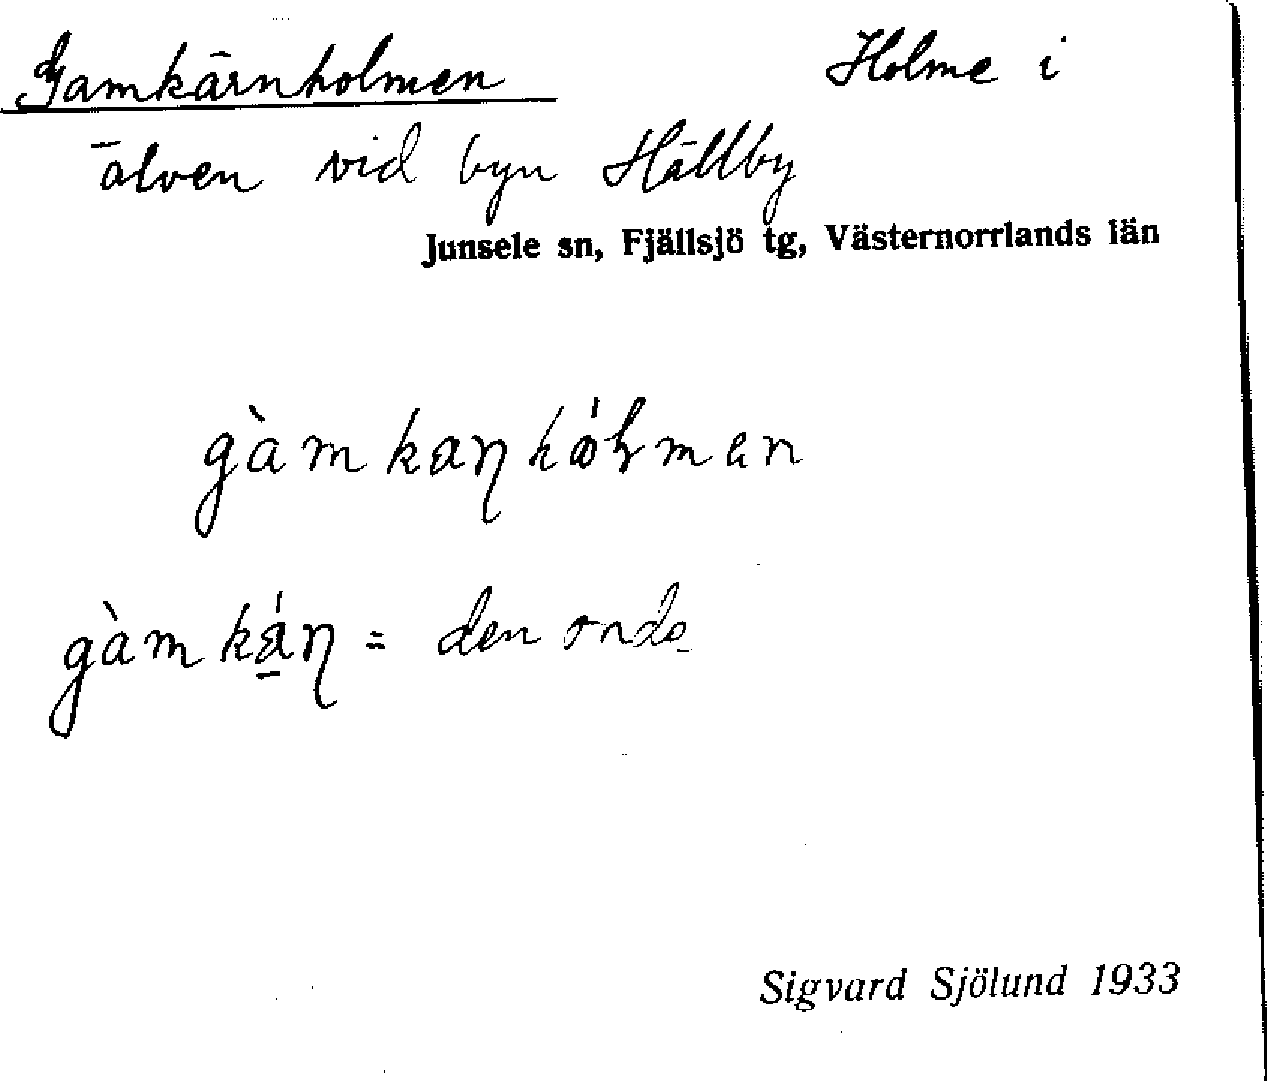 Gamkärnholmen Holme i
älven vid byn Hällby
Junsele sn, Fjällsjö tg, Västernorrlands län
gàmkaꞃhólmen
gàmkáꞃ = den onde
Sigvard Sjölund 1933